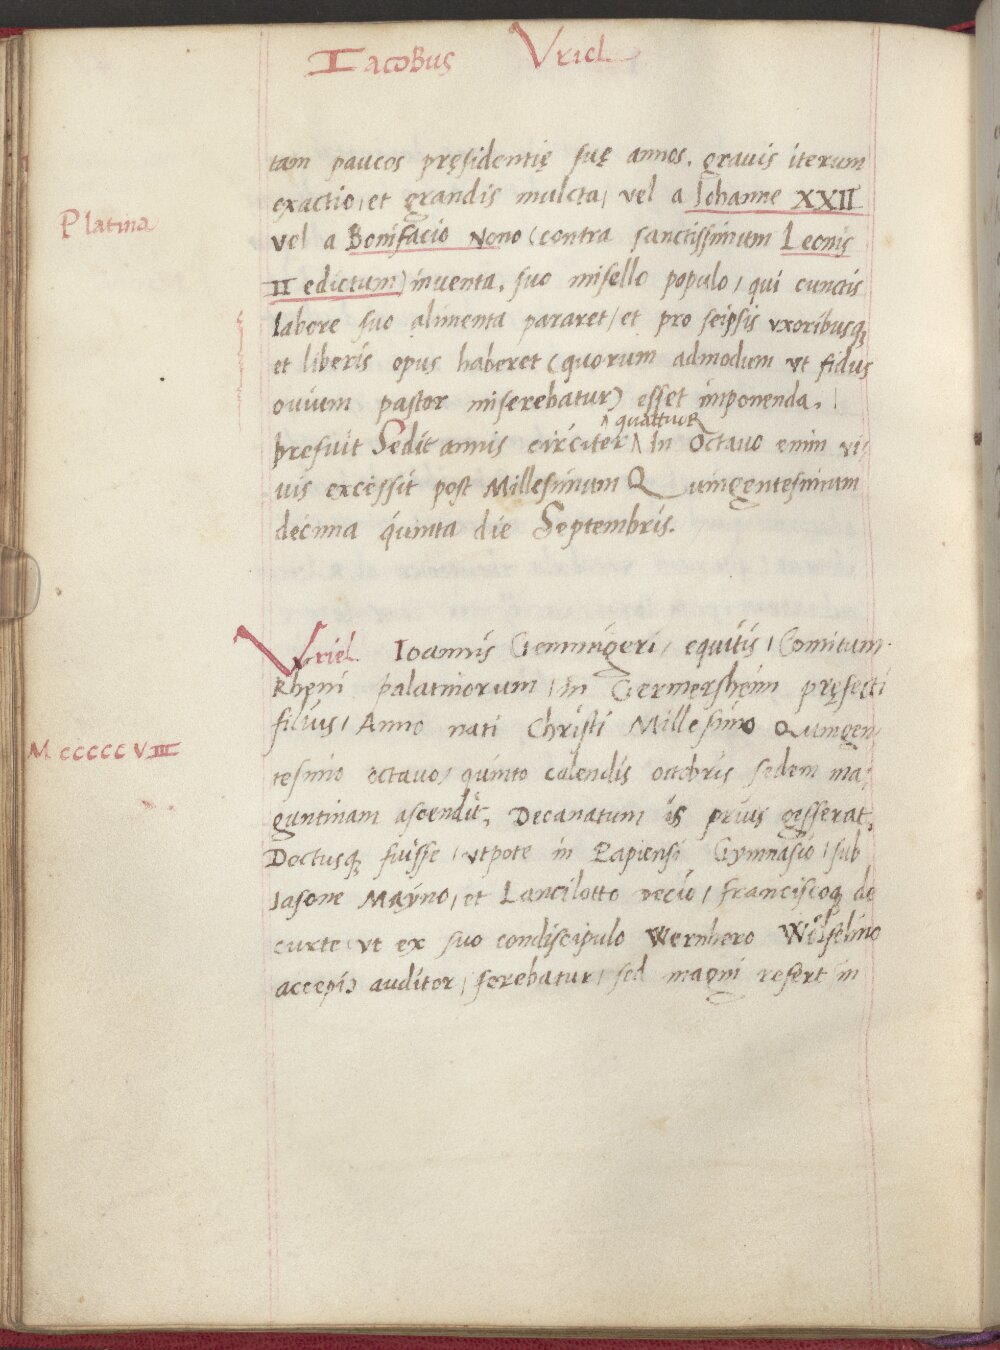 Iacobus Vriel
tam paucos pręsidentię suę annos, grauis iterum
exactio, et grandis mulcta, vel a Iohanne XXII
Platina
vel a Bonifacio Nono (contra sanctissimum Leonis
II edictum) inuenta, suo misello populo, qui cunctis
labore suo alimenta pararet, et pro seipsis vxoribusq;
et liberis opus haberet (quorum admodum vt fidus
ouium pastor miserebatur) esset imponenda.
quattuor
presuit Sedit annis circiter In Octauo enim vi,
uis excessit post Millesimum Quingentesimum
decima quinta die Septembris.
Vriel Ioannis Gemingeri, equitis, Comitum
Rheni palatinorum, in Germersheim pręfecti
filius, Anno nati Christi Millesimo Quingen,
M CCCCC VIII
tesimo octauo, quinto calendis octobris sedem ma,
guntinam ascendit, Decanatum is prius gesserat,
Doctusq; fuisse, vtpote in Papiensi Gymnasio, sub
Iasone Mayno, et Lancilotto Decio, Franciscoq; de
curte, vt ex suo condiscipulo Wernhero
accepi, auditor, ferebatur, sed magni refert in